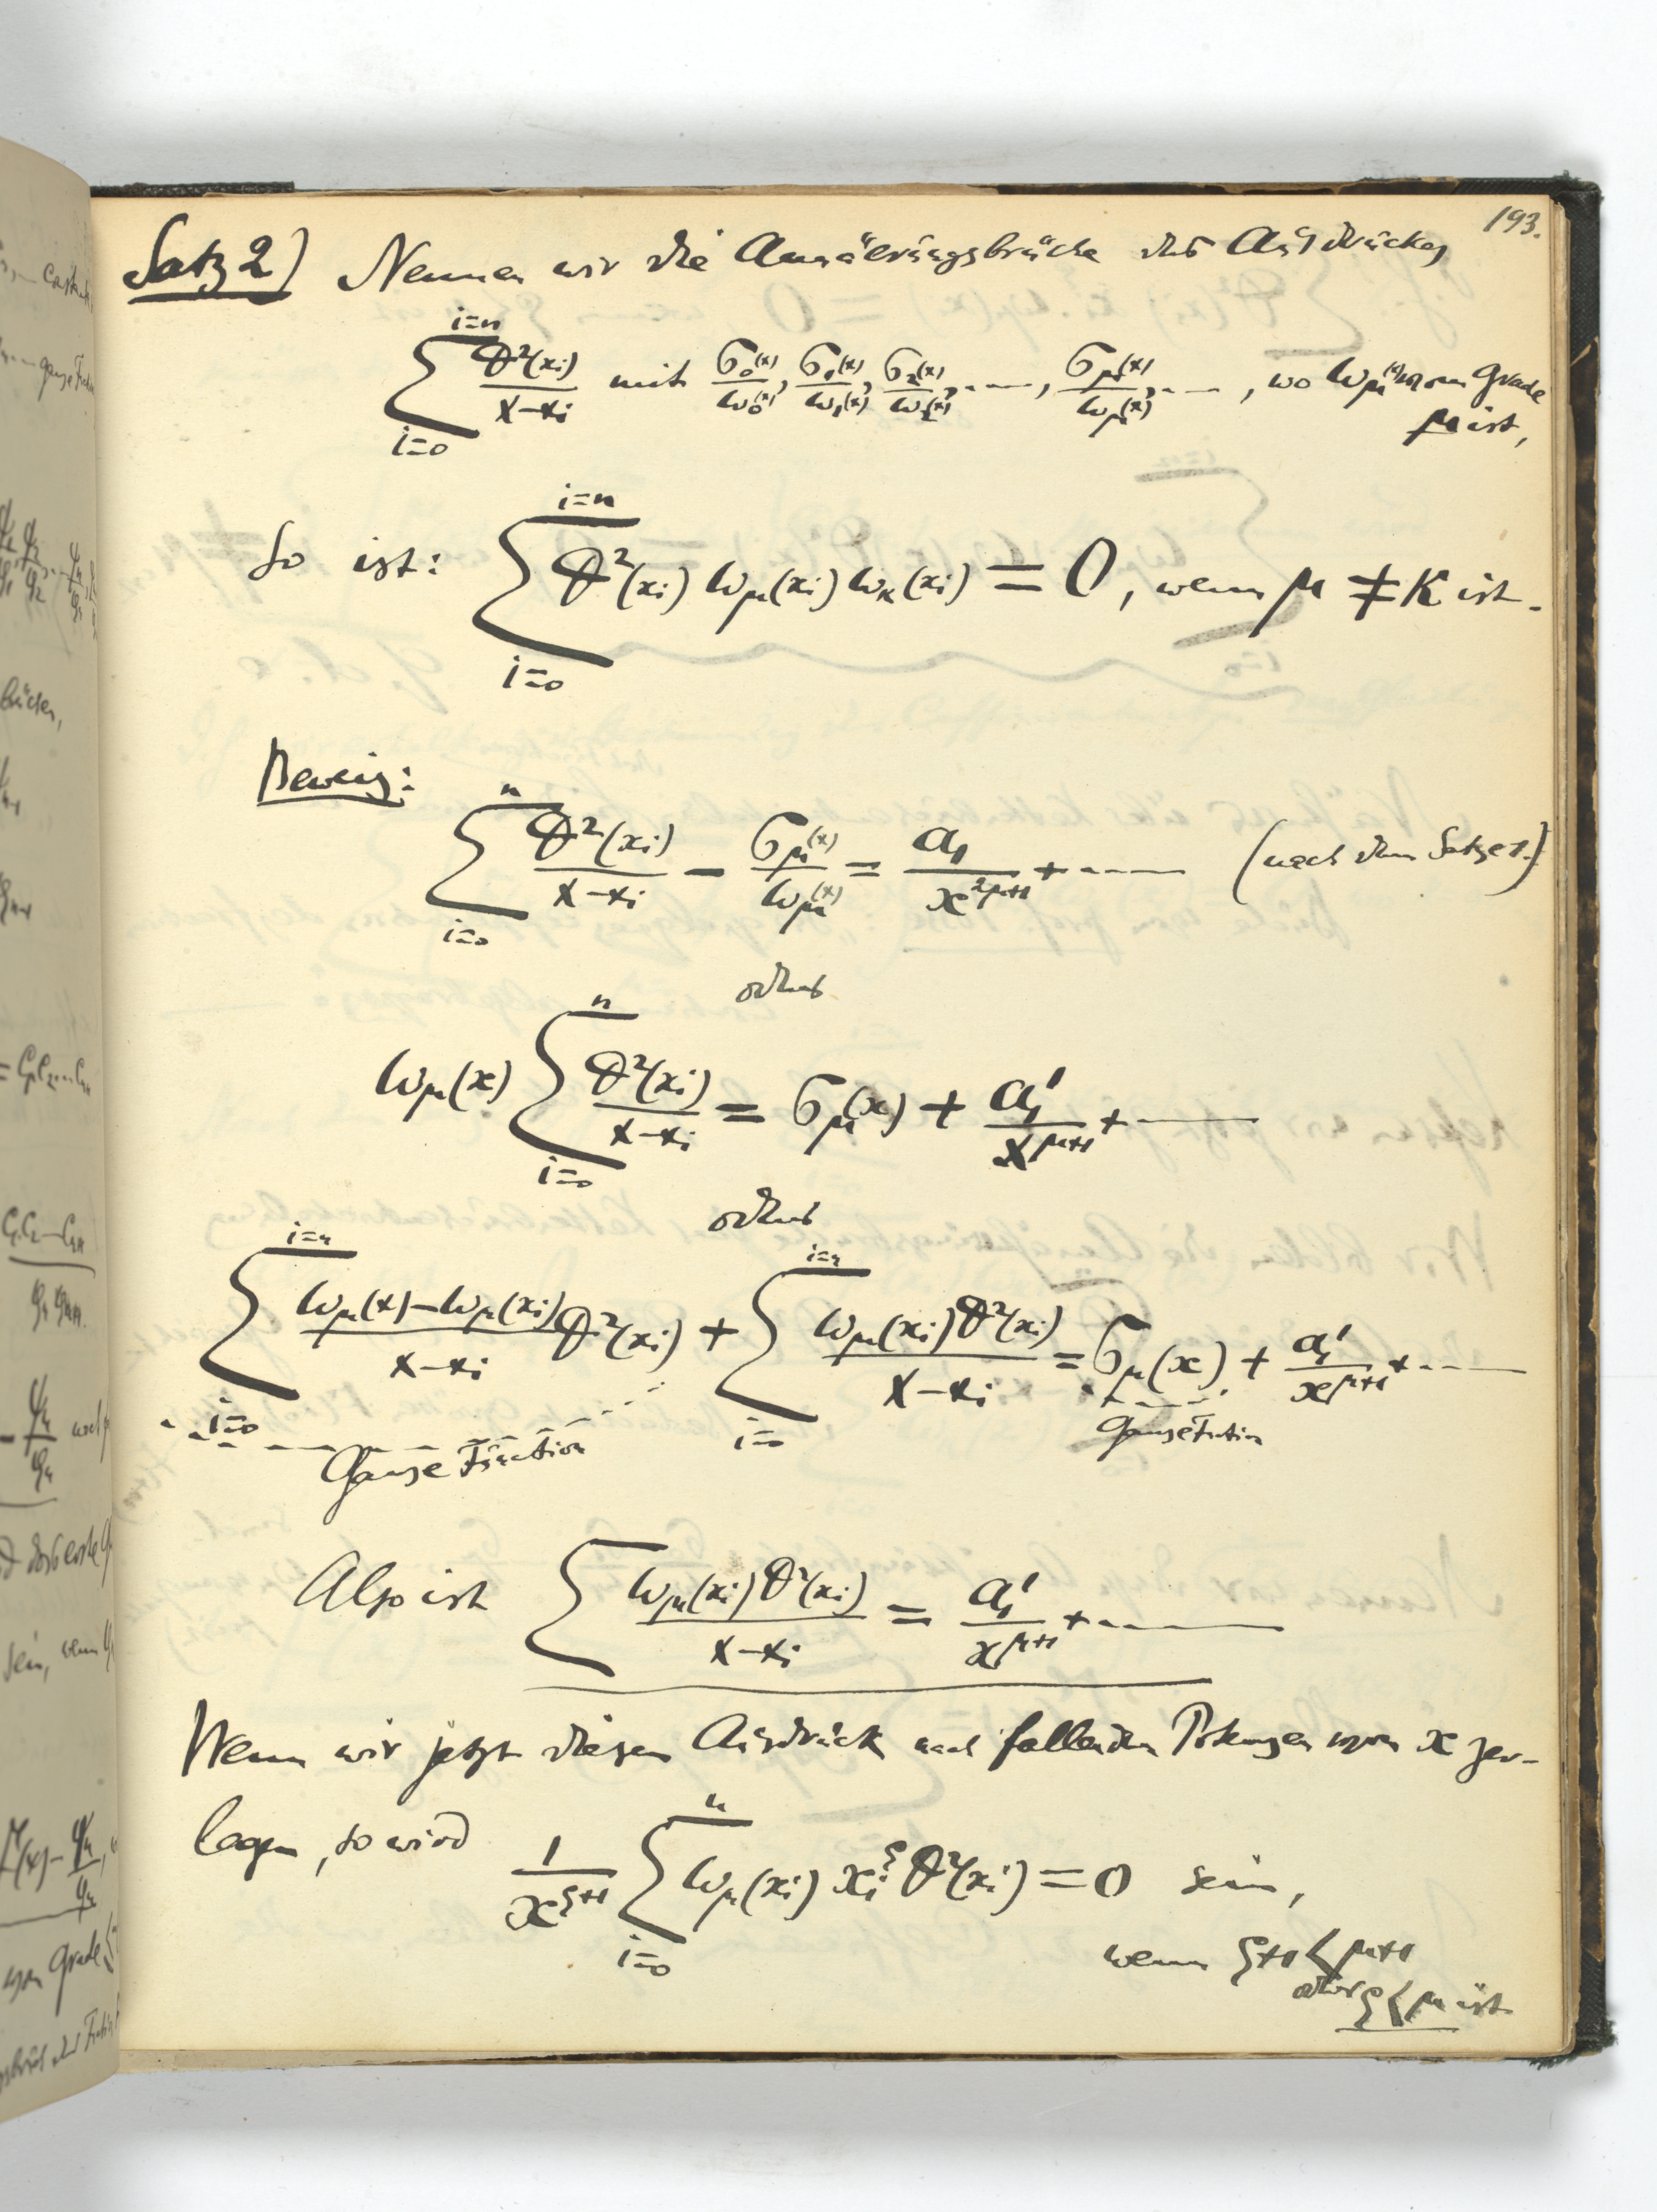 193.
Satz 2) Nennen wir die Annäerungsbrüche des Ausdruckes
$\sum_{i=0}^{i=n} \frac{\theta^2(x_i)}{x-x_i}$ mit $\frac{\sigma_0(x)}{\omega_0(x)}, \frac{\sigma_1(x)}{\omega_1(x)}, \frac{\sigma_2(x)}{\omega_2(x)}, \ldots, \frac{\sigma_\mu(x)}{\omega_\mu(x)}, \ldots$, wo $\omega_\mu(x)$ vom Grade
$\mu$ ist,
So ist: $\sum_{i=0}^{i=n} \theta^2(x_i) \omega_\mu(x_i) \omega_\kappa(x_i) = 0$, wenn $\mu \neq \kappa$ ist.
Beweis:
$\sum_{i=0}^{n} \frac{\theta^2(x_i)}{x-x_i} - \frac{\sigma_\mu(x)}{\omega_\mu(x)} = \frac{a_1}{x^{2\mu+1}} + \ldots$ (nach dem Satze 1.)
oder
$\omega_\mu(x) \sum_{i=0}^{n} \frac{\theta^2(x_i)}{x-x_i} = \sigma_\mu(x) + \frac{a_1'}{x^{\mu+1}} + \ldots$
oder
$\sum_{i=0}^{i=n} \frac{\omega_\mu(x)-\omega_\mu(x_i)}{x-x_i} \theta^2(x_i) + \sum_{i=0}^{i=n} \frac{\omega_\mu(x_i)\theta^2(x_i)}{x-x_i} = \sigma_\mu(x) + \frac{a_1'}{x^{\mu+1}} + \ldots$
Ganze Function Ganze Function
Also ist $\sum \frac{\omega_\mu(x_i)\theta^2(x_i)}{x-x_i} = \frac{a_1'}{x^{\mu+1}} + \ldots$
Wenn wir jetzt diesen Ausdruck nach fallenden Potenzen von x zer-
legen, so wird $\frac{1}{x^{\xi+1}} \sum_{i=0}^{n} \omega_\mu(x_i) x_i^\xi \theta^2(x_i) = 0$ sein,
wenn $\xi+1 < \mu+1$
oder $\xi < \mu$ ist